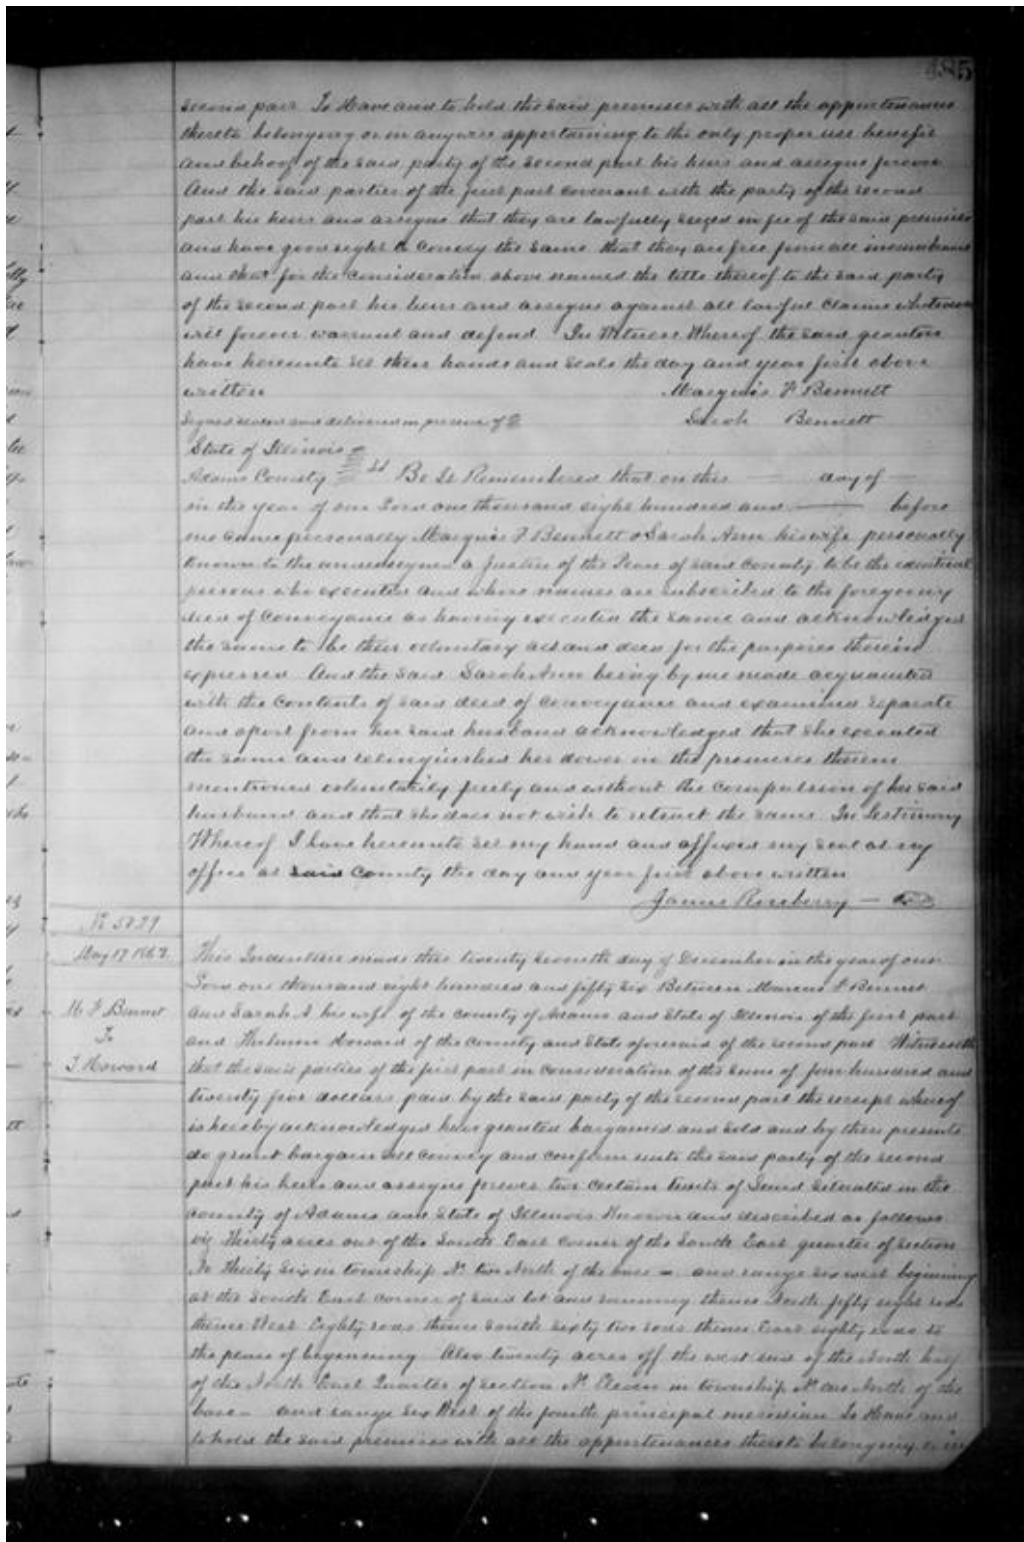 485
second part To Have and to hold the said premises with all the appurtenances
thereto belonging or in anywise appertaining to the only proper use benefit
and behoof of the said party of the second part his heirs and assigns forever
And the said parties of the first part covenant with the party of the second
part his heirs and assigns that they are lawfully seized in fee of the said premises
and have good right to convey the same that they are free from all incumbrance
and that for the consideration above named the title thereof to the said party
of the second part his heirs and assigns against all lawful claims whatsoever
will forever warrant and defend In Witness Whereof the said grantors
have hereunto set their hands and seals the day and year first above
written Marquis F Bennett
Signed sealed and delivered in presence of Sarah Bennett
State of Illinois
Adams County ss Be It Remembered that on this — day of —
in the year of our Lord one thousand eight hundred and — before
me came personally Marquis F Bennett & Sarah Ann his wife personally
known to the undersigned a Justice of the Peace of said County to be the identical
persons who executed and whose names are subscribed to the foregoing
deed of conveyance as having executed the same and acknowledged
the same to be their voluntary act and deed for the purposes therein
expressed And the said Sarah Ann being by me made acquainted
with the contents of said deed of conveyance and examined separate
and apart from her said husband acknowledged that she executed
the same and relinquished her dower in the premises therein
mentioned voluntarily freely and without the compulsion of her said
husband and that she does not wish to retract the same In Testimony
Whereof I have hereunto set my hand and affixed my seal at my
office at said County the day and year first above written
James Roseberry —
No 5829
May 17 186
M F Bennet
To
T Howard
This Indenture made this twenty seventh day of December in the year of our
Lord one thousand eight hundred and fifty six Between Marcus F Bennet
and Sarah A his wife of the county of Adams and State of Illinois of the first part
and Howard of the County and State aforesaid of the second part Witnesseth
that the said parties of the first part in consideration of the sum of four hundred and
twenty five dollars paid by the said party of the second part the receipt whereof
is hereby acknowledged have granted bargained and sold and by these presents
do grant bargain sell convey and confirm unto the said party of the second
part his heirs and assigns forever two certain tracts of Land situated in the
county of Adams and State of Illinois Known and described as follows
viz Thirty acres out of the South East corner of the South East quarter of section
No Thirty Six in township No two North of the base — and range six west begining
at the South East corner of said lot and running thence North fifty eight rods
thence West Eighty rods thence South sixty two rods thence East eighty rods to
the place of begenning Also twenty acres off the west end of the North half
of the North East Quarter of section No Eleven in township No one North of the
base — and range Six West of the fourth principal meridian To Have and
to hold the said premises with all the appurtenances thereto belonging or in